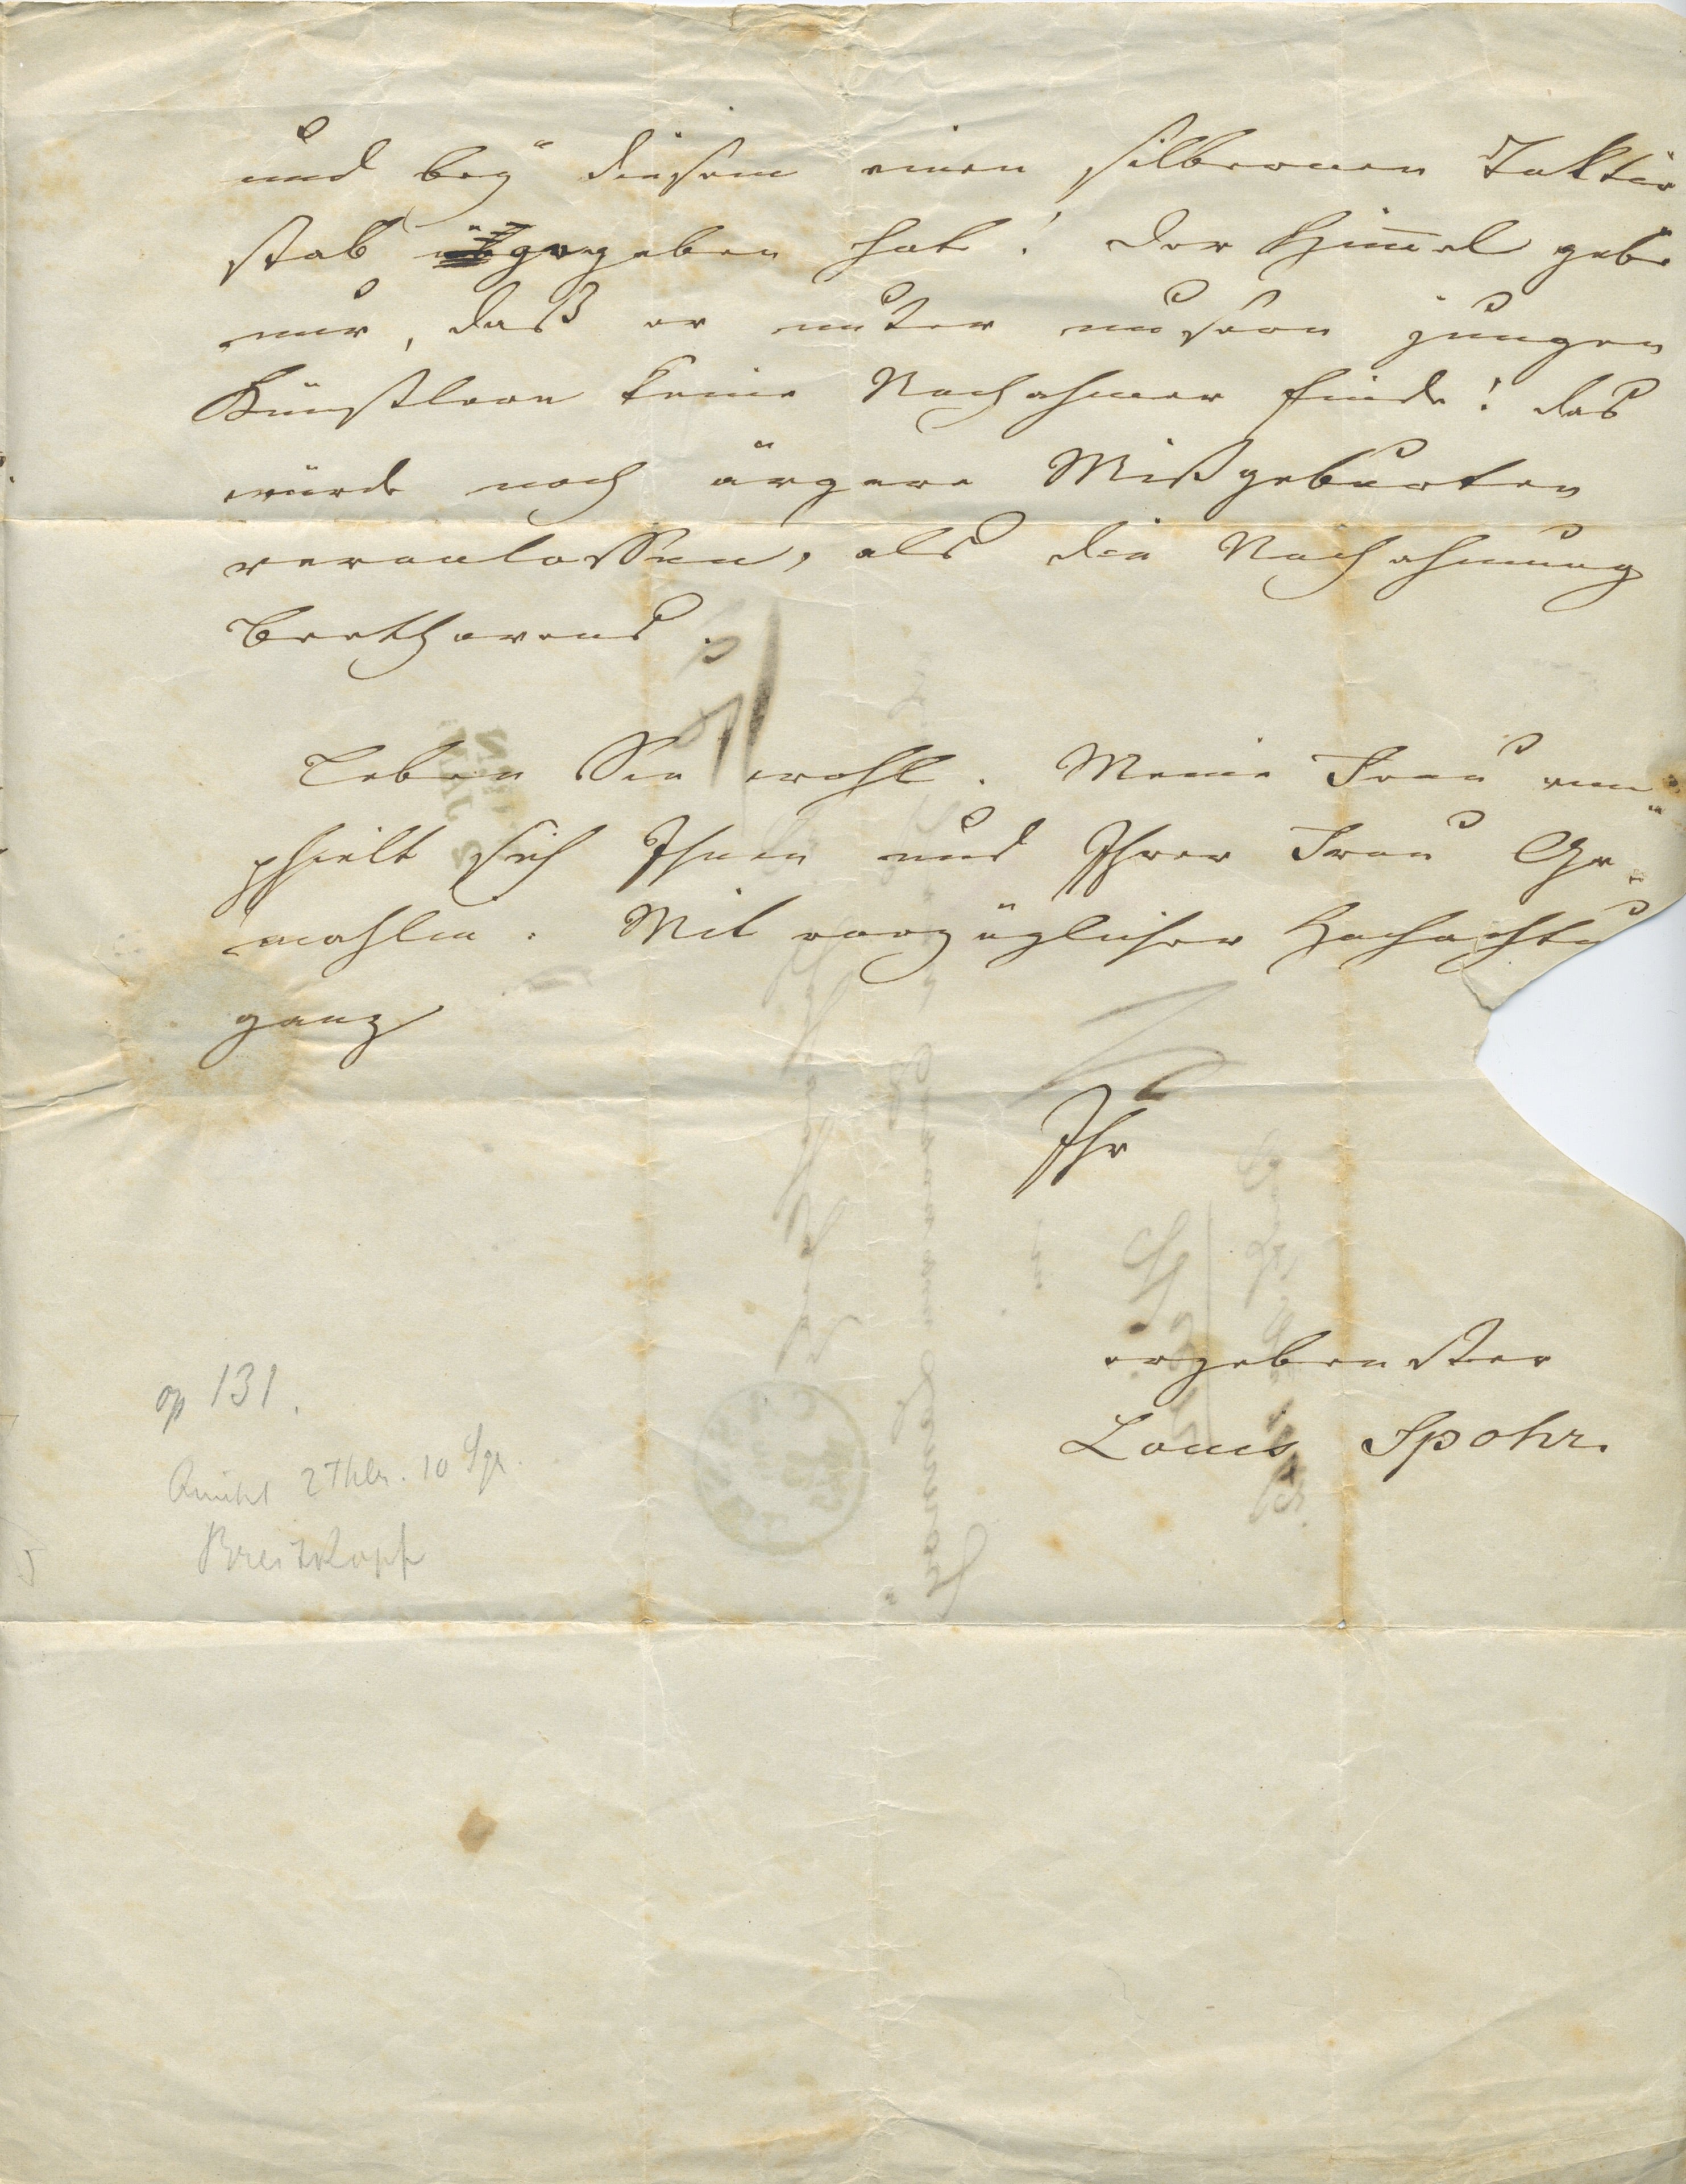 und bey diesem einen silbernen Taktir
stab gegeben hat! Der Him̅el gebe
nur, daß er unter unsern jungen
Künstlern keine Nachahmer finde! das
würde noch ärgere Mißgeburten
veranlassen, als die Nachahmung
Beethovens.
Leben Sie wohl. Meine Frau em„
pfielt sich Ihnen und Ihrer Frau Ge„
mahlin. Mit vorzüglicher Hochachtu
ganz
Ihr
ergebenster
Louis Spohr.
op 131.
2 Thlr. 10 Sgr.
Breitkopf